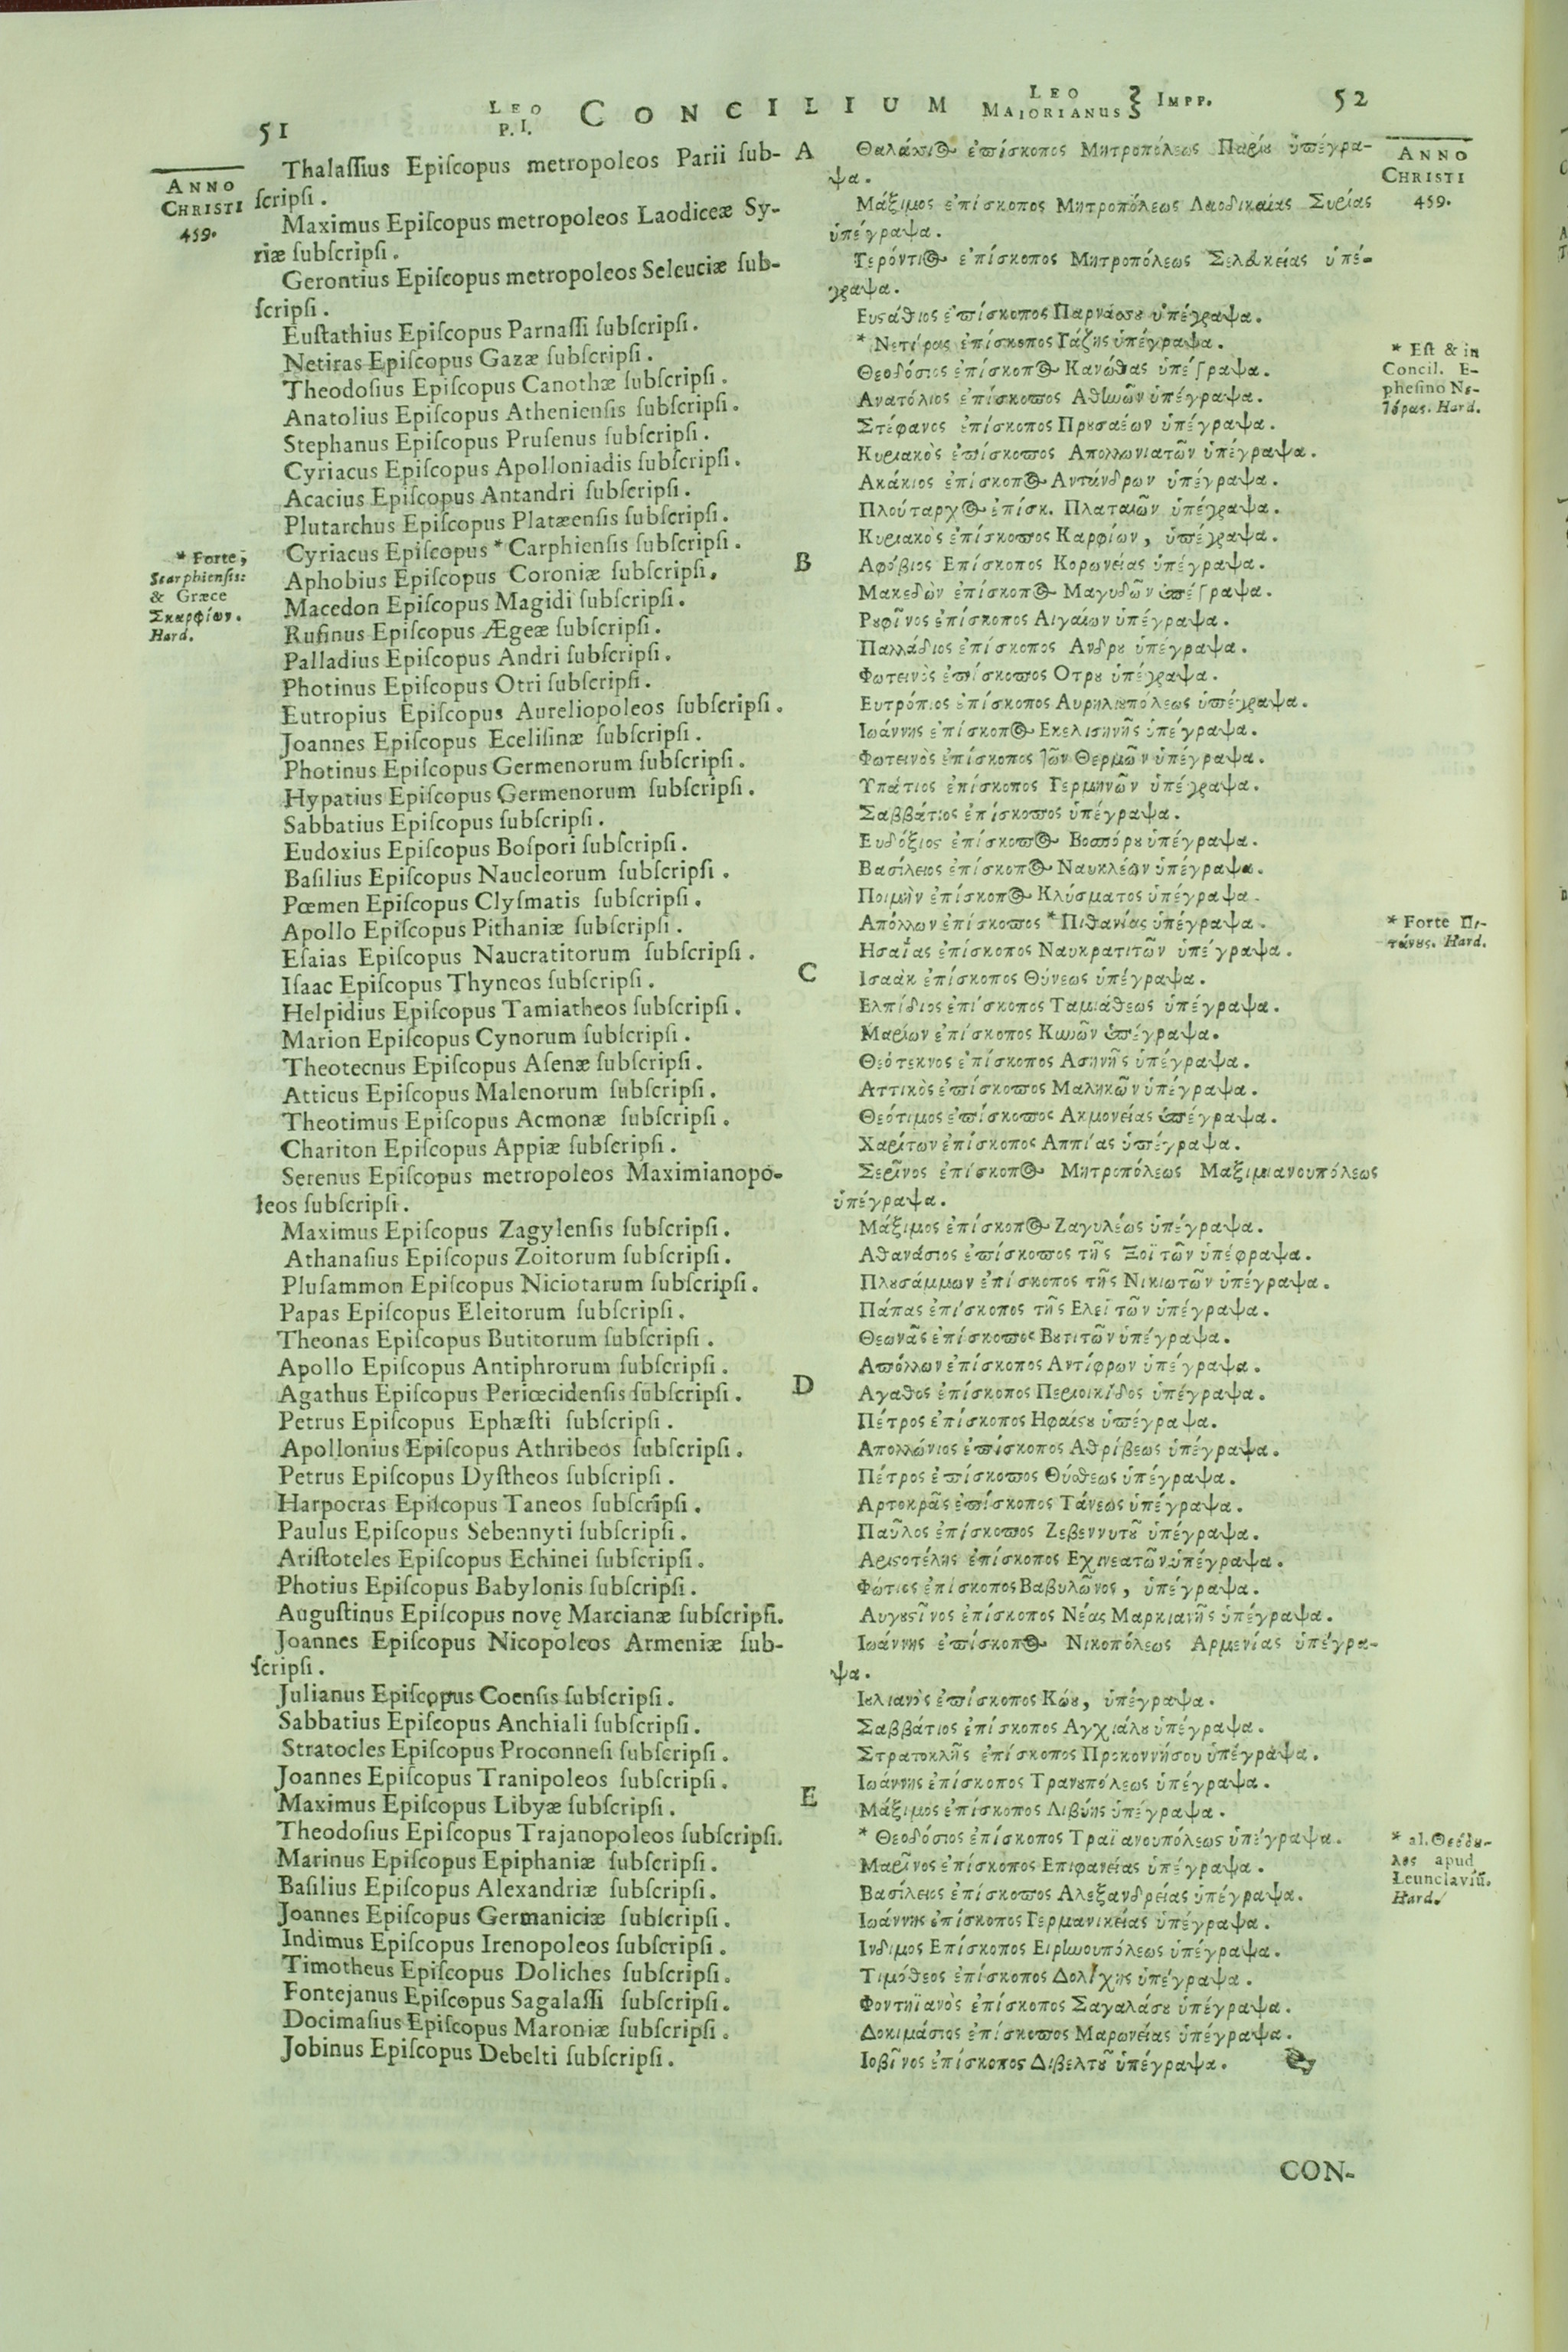 51
LEO P. I.
CONCILIUM
LEO MAIORIANUS IMPP.
52
ANNO
CHRISTI
459.
Thalaſſius Epiſcopus metropoleos Parii ſub-
ſcripſi.
Maximus Epiſcopus metropoleos Laodiceæ Sy-
riæ ſubſcripſi.
Gerontius Epiſcopus metropoleos Seleuciæ ſub-
ſcripſi.
Euſtathius Epiſcopus Parnaſſi ſubſcripſi.
Netiras Epiſcopus Gazæ ſubſcripſi.
Theodoſius Epiſcopus Canothæ ſubſcripſi.
Anatolius Epiſcopus Athenienſis ſubſcripſi.
Stephanus Epiſcopus Pruſenus ſubſcripſi.
Cyriacus Epiſcopus Apolloniadis ſubſcripſi.
Acacius Epiſcopus Antandri ſubſcripſi.
Plutarchus Epiſcopus Platæenſis ſubſcripſi.
Cyriacus Epiſcopus * Carphienſis ſubſcripſi.
Aphobius Epiſcopus Coroniæ ſubſcripſi.
Macedon Epiſcopus Magidi ſubſcripſi.
Rufinus Epiſcopus Ægeæ ſubſcripſi.
Palladius Epiſcopus Andri ſubſcripſi.
Photinus Epiſcopus Otri ſubſcripſi.
Eutropius Epiſcopus Aureliopoleos ſubſcripſi.
Joannes Epiſcopus Eceliſinæ ſubſcripſi.
Photinus Epiſcopus Germenorum ſubſcripſi.
Hypatius Epiſcopus Germenorum ſubſcripſi.
Sabbatius Epiſcopus ſubſcripſi.
Eudoxius Epiſcopus Boſpori ſubſcripſi.
Baſilius Epiſcopus Naucleorum ſubſcripſi.
Pœmen Epiſcopus Clyſmatis ſubſcripſi.
Apollo Epiſcopus Pithaniæ ſubſcripſi.
Eſaias Epiſcopus Naucratitorum ſubſcripſi.
Iſaac Epiſcopus Thyneos ſubſcripſi.
Helpidius Epiſcopus Tamiatheos ſubſcripſi.
Marion Epiſcopus Cynorum ſubſcripſi.
Theotecnus Epiſcopus Aſenæ ſubſcripſi.
Atticus Epiſcopus Malenorum ſubſcripſi.
Theotimus Epiſcopus Acmonæ ſubſcripſi.
Chariton Epiſcopus Appiæ ſubſcripſi.
Serenus Epiſcopus metropoleos Maximianopo-
leos ſubſcripſi.
Maximus Epiſcopus Zagylenſis ſubſcripſi.
Athanaſius Epiſcopus Zoitorum ſubſcripſi.
Pluſammon Epiſcopus Niciotarum ſubſcripſi.
Papas Epiſcopus Eleitorum ſubſcripſi.
Theonas Epiſcopus Butitorum ſubſcripſi.
Apollo Epiſcopus Antiphrorum ſubſcripſi.
Agathus Epiſcopus Periœcidenſis ſubſcripſi.
Petrus Epiſcopus Ephæſti ſubſcripſi.
Apollonius Epiſcopus Athribeos ſubſcripſi.
Petrus Epiſcopus Dyſtheos ſubſcripſi.
Harpocras Epiſcopus Taneos ſubſcripſi.
Paulus Epiſcopus Sebennyti ſubſcripſi.
Ariſtoteles Epiſcopus Echinei ſubſcripſi.
Photius Epiſcopus Babylonis ſubſcripſi.
Auguſtinus Epiſcopus novę Marcianæ ſubſcripſi.
Joannes Epiſcopus Nicopoleos Armeniæ ſub-
ſcripſi.
Julianus Epiſcopus Coenſis ſubſcripſi.
Sabbatius Epiſcopus Anchiali ſubſcripſi.
Stratocles Epiſcopus Proconneſi ſubſcripſi.
Joannes Epiſcopus Tranipoleos ſubſcripſi.
Maximus Epiſcopus Libyæ ſubſcripſi.
Theodoſius Epiſcopus Trajanopoleos ſubſcripſi.
Marinus Epiſcopus Epiphaniæ ſubſcripſi.
Baſilius Epiſcopus Alexandriæ ſubſcripſi.
Joannes Epiſcopus Germaniciæ ſubſcripſi.
Indimus Epiſcopus Irenopoleos ſubſcripſi.
Timotheus Epiſcopus Doliches ſubſcripſi.
Fontejanus Epiſcopus Sagalaſſi ſubſcripſi.
Docimaſius Epiſcopus Maroniæ ſubſcripſi.
Jobinus Epiſcopus Debelti ſubſcripſi.
* Forte,
Scarphienſis:
& Græce
Σκαρφίων.
Hard.
A
B
C
D
E
Θαλάσσιος ἐπίσκοπος Μητροπόλεως Παρίου ὑπέγρα-
ψα.
Μάξιμος ἐπίσκοπος Μητροπόλεως Λαοδικαίας Συρίας
ὑπέγραψα.
Γερόντιος ἐπίσκοπος Μητροπόλεως Σελευκείας ὑπέ-
γραψα.
Ευστάθιος ἐπίσκοπος Παρνάσου ὑπέγραψα.
* Νετίρας ἐπίσκοπος Γάζης ὑπέγραψα.
Θεοδόσιος ἐπίσκοπος Κανώθας ὑπέγραψα.
Ανατόλιος ἐπίσκοπος Αθηνῶν ὑπέγραψα.
Στέφανος ἐπίσκοπος Προυσαέων ὑπέγραψα.
Κυριακὸς ἐπίσκοπος Απολλωνιατῶν ὑπέγραψα.
Ακάκιος ἐπίσκοπος Αντάνδρων ὑπέγραψα.
Πλούταρχος ἐπίσκ. Πλαταιῶν ὑπέγραψα.
Κυριακὸς ἐπίσκοπος Καρφίων, ὑπέγραψα.
Αφόβιος Επίσκοπος Κορωνείας ὑπέγραψα.
Μακεδὼν ἐπίσκοπος Μαγυδῶν ὑπέγραψα.
Ρουφῖνος ἐπίσκοπος Αιγαίων ὑπέγραψα.
Παλλάδιος ἐπίσκοπος Ανδρου ὑπέγραψα.
Φωτεινὸς ἐπίσκοπος Οτρου ὑπέγραψα.
Ευτρόπιος ἐπίσκοπος Αυρηλιουπόλεως ὑπέγραψα.
Ιωάννης ἐπίσκοπος Εκελισηνῆς ὑπέγραψα.
Φωτεινὸς ἐπίσκοπος τῶν Θερμῶν ὑπέγραψα.
Υπάτιος ἐπίσκοπος Γερμηνῶν ὑπέγραψα.
Σαββάτιος ἐπίσκοπος ὑπέγραψα.
Ευδόξιος ἐπίσκοπος Βοσπόρου ὑπέγραψα.
Βασίλειος ἐπίσκοπος Ναυκλέων ὑπέγραψα.
Ποιμὴν ἐπίσκοπος Κλύσματος ὑπέγραψα.
Απόλλων ἐπίσκοπος * Πιθανίας ὑπέγραψα.
Ησαΐας ἐπίσκοπος Ναυκρατιτῶν ὑπέγραψα.
Ισαὰκ ἐπίσκοπος Θύνεως ὑπέγραψα.
Ελπίδιος ἐπίσκοπος Ταμιάθεως ὑπέγραψα.
Μαρίων ἐπίσκοπος Κυνῶν ὑπέγραψα.
Θεότεκνος ἐπίσκοπος Ασηνῆς ὑπέγραψα.
Αττικὸς ἐπίσκοπος Μαληκῶν ὑπέγραψα.
Θεότιμος ἐπίσκοπος Ακμονείας ὑπέγραψα.
Χαρίτων ἐπίσκοπος Αππίας ὑπέγραψα.
Σερῖνος ἐπίσκοπος Μητροπόλεως Μαξιμιανουπόλεως
ὑπέγραψα.
Μάξιμος ἐπίσκοπος Ζαγυλέως ὑπέγραψα.
Αθανάσιος ἐπίσκοπος τῆς Ξοϊτῶν ὑπέφραψα.
Πλουσάμμων ἐπίσκοπος τῆς Νικιωτῶν ὑπέγραψα.
Πάπας ἐπίσκοπος τῆς Ελεϊτῶν ὑπέγραψα.
Θεωνᾶς ἐπίσκοπος Βουτιτῶν ὑπέγραψα.
Απόλλων ἐπίσκοπος Αντίφρων ὑπέγραψα.
Αγαθος ἐπίσκοπος Περιοικίδος ὑπέγραψα.
Πέτρος ἐπίσκοπος Ηφαίστου ὑπέγραψα.
Απολλώνιος ἐπίσκοπος Αθρίβεως ὑπέγραψα.
Πέτρος ἐπίσκοπος Θύσθεως ὑπέγραψα.
Αρτοκρᾶς ἐπίσκοπος Τάνεως ὑπέγραψα.
Παῦλος ἐπίσκοπος Ζεβεννυτοῦ ὑπέγραψα.
Αριστοτέλης ἐπίσκοπος Εχινεατῶν ὑπέγραψα.
Φώτιος ἐπίσκοπος Βαβυλῶνος, ὑπέγραψα.
Αυγουστῖνος ἐπίσκοπος Νέας Μαρκιανῆς ὑπέγραψα.
Ιωάννης ἐπίσκοπος Νικοπόλεως Αρμενίας ὑπέγρα-
ψα.
Ιουλιανὸς ἐπίσκοπος Κώου, ὑπέγραψα.
Σαββάτιος ἐπίσκοπος Αγχιάλου ὑπέγραψα.
Στρατοκλῆς ἐπίσκοπος Προκοννήσου ὑπέγραψα.
Ιωάννης ἐπίσκοπος Τρανουπόλεως ὑπέγραψα.
Μάξιμος ἐπίσκοπος Λιβύης ὑπέγραψα.
* Θεοδόσιος ἐπίσκοπος Τραϊανουπόλεως ὑπέγραψα.
Μαρῖνος ἐπίσκοπος Επιφανείας ὑπέγραψα.
Βασίλειος ἐπίσκοπος Αλεξανδρείας ὑπέγραψα.
Ιωάννης ἐπίσκοπος Γερμανικείας ὑπέγραψα.
Ινδιμος Επίσκοπος Ειρηνουπόλεως ὑπέγραψα.
Τιμόθεος ἐπίσκοπος Δολίχης ὑπέγραψα.
Φοντηϊανὸς ἐπίσκοπος Σαγαλάσου ὑπέγραψα.
Δοκιμάσιος ἐπίσκοπος Μαρωνείας ὑπέγραψα.
Ιοβῖνος ἐπίσκοπος Διβελτοῦ ὑπέγραψα.
ANNO
CHRISTI
459.
* Eſt & in
Concil. E-
pheſino Νε-
τόρας. Hard.
* Forte Πι-
τάνους. Hard.
* al. Θεόδου-
λος apud
Leunclaviũ.
Hard.
CON-